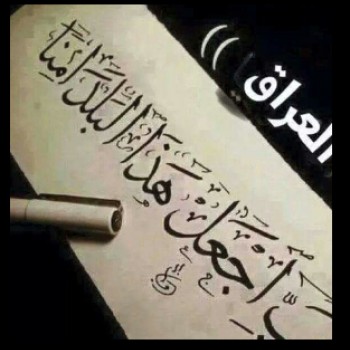 العراق ))
رَبِّ اجْعَلْ هَذَا الْبَلَدَ آمِنًا